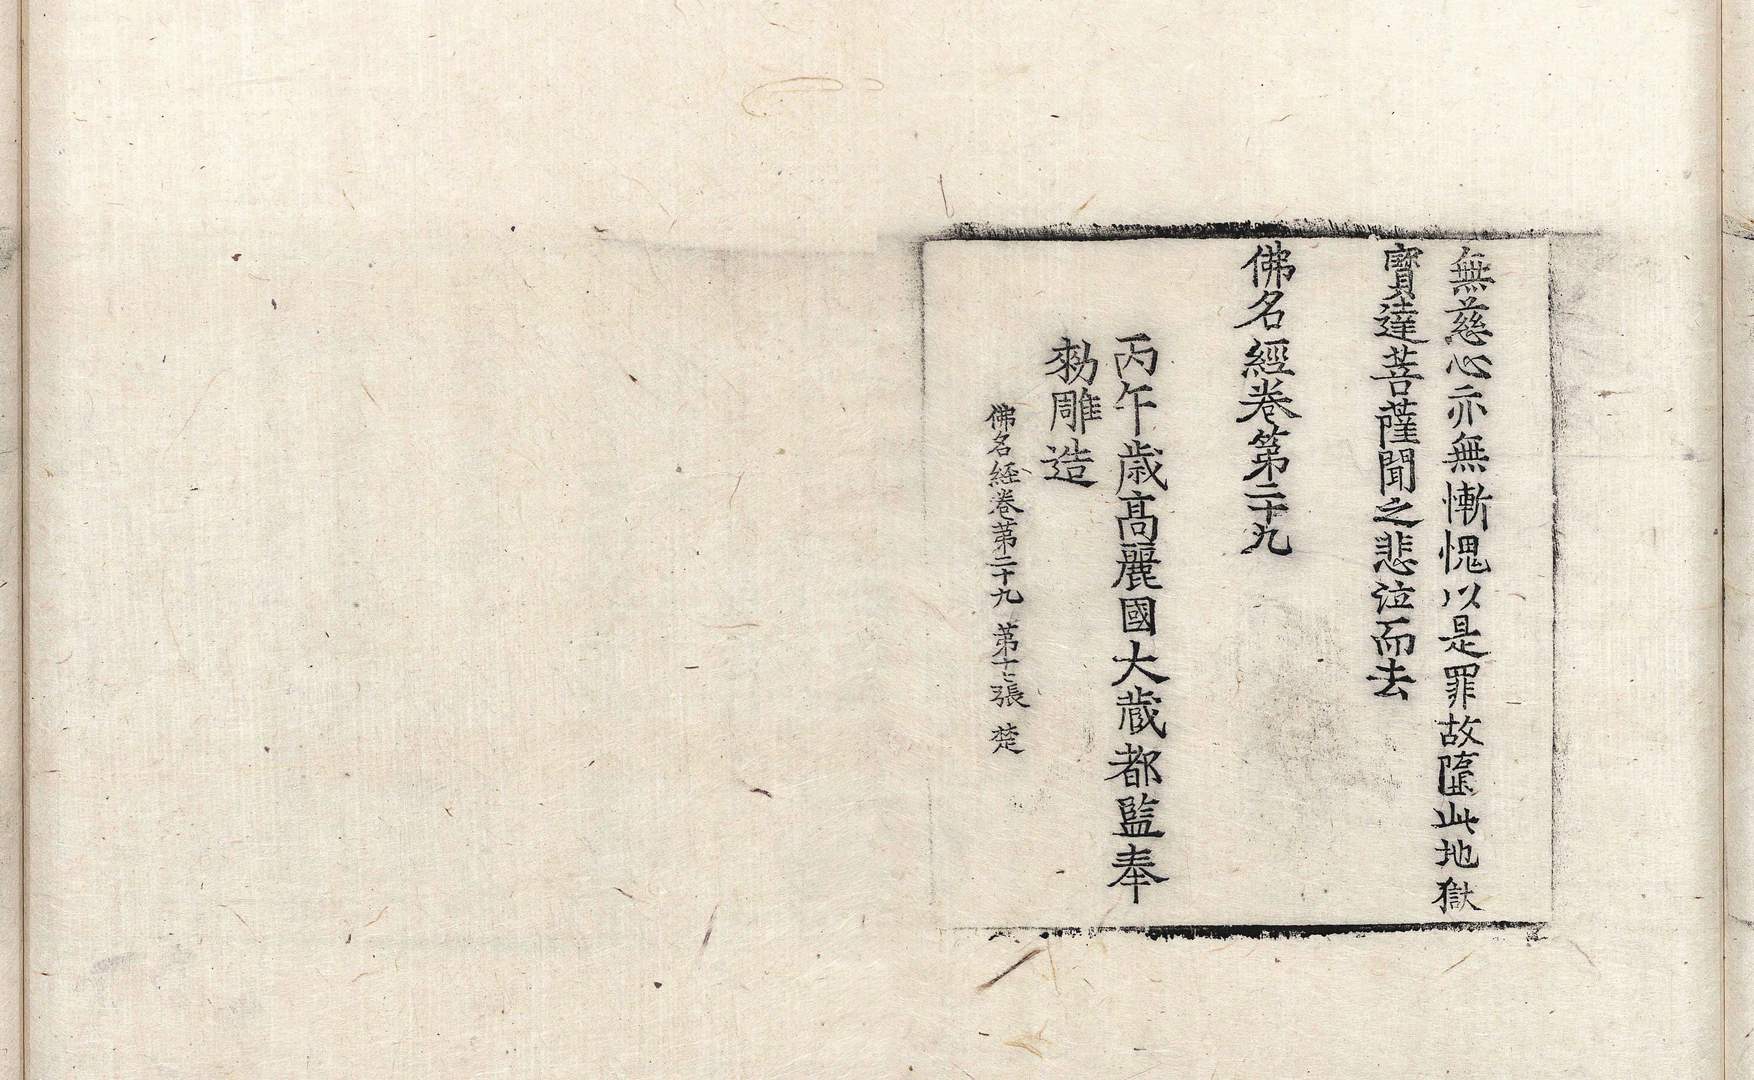 無慈心亦無慚愧以是罪故墮此地獄
寶達菩薩聞之悲泣而去
佛名經卷第二十九
丙午歲高麗國大藏都監奉
勑雕造
佛名經卷第二十九 第十七張 楚